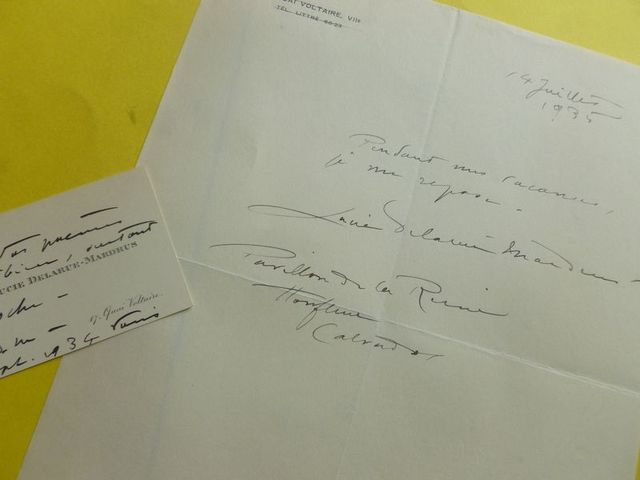 QUAI VOLTAIRE, VIIe
TEL LITTRÉ
14 Juillet
1935
Pendant mes vacances,
je me repose.
Lucie Delarue Mardrus
Pavillon de la Reine
Honfleur
Calvados
Vos poèmes
bien, surtout
LUCIE DELARUE-MARDRUS
17, Quai Voltaire.
1934 Paris